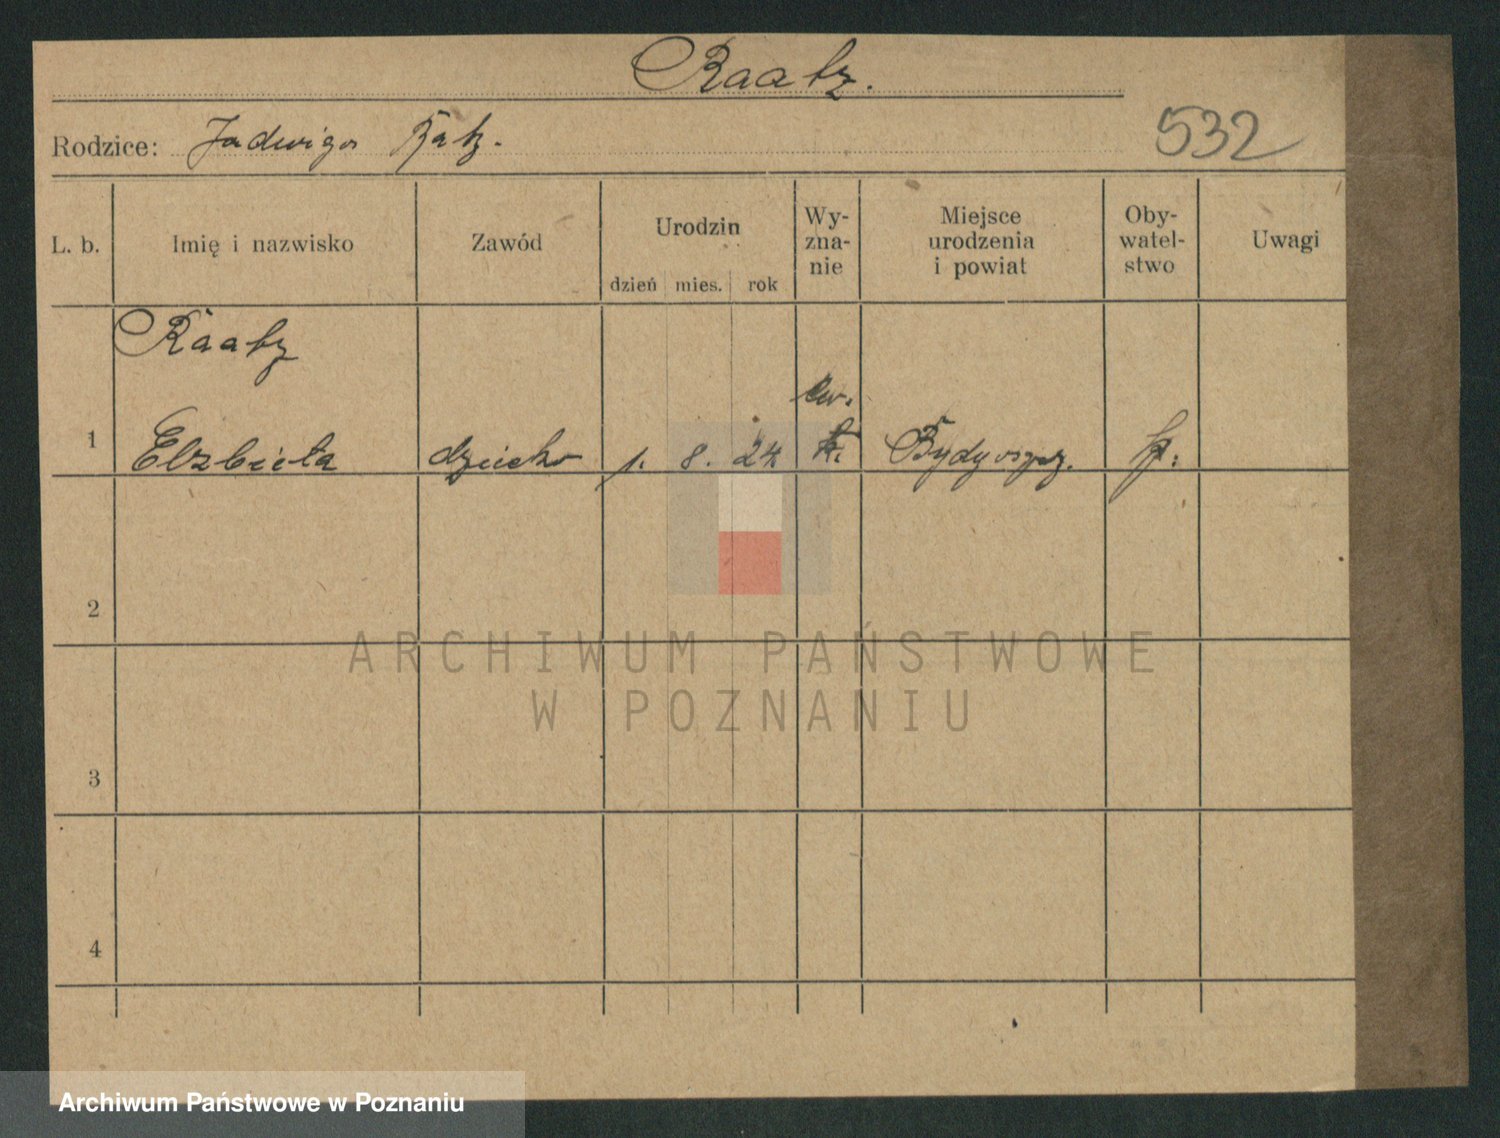 Raatz.
Rodzice: Jadwiga Ratz.
532
L. b. Imię i nazwisko Zawód Urodzin dzień mies. rok Wy-zna-nie Miejsce urodzenia i powiat Oby-watel-stwo Uwagi
Raatz
ew.
1 Elzbieta dziecko 1. 8. 24 k. Bydgoszcz. p.
2
3
4
ARCHIWUM PAŃSTWOWE
W POZNANIU
Archiwum Państwowe w Poznaniu